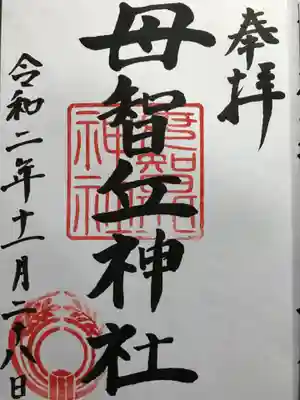 奉拝
母智丘神社
令和二年十一月二十八日